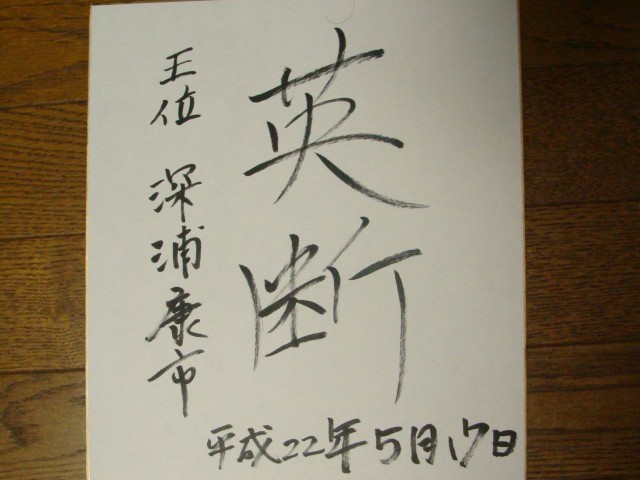 英断
王位 深浦康市
平成22年5月17日